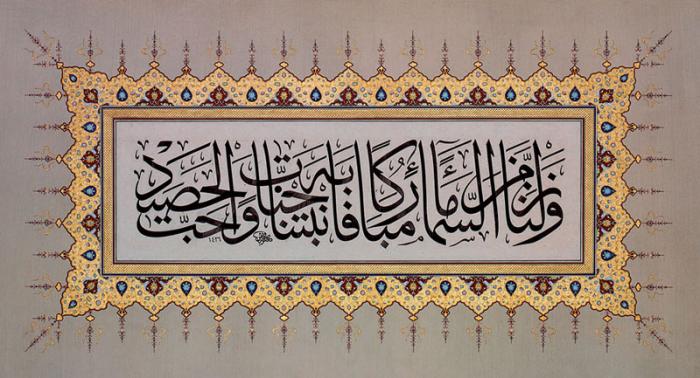 ونزلنا من السماء ماء مباركا فأنبتنا به جنات وحب الحصيد
١٤٢٦